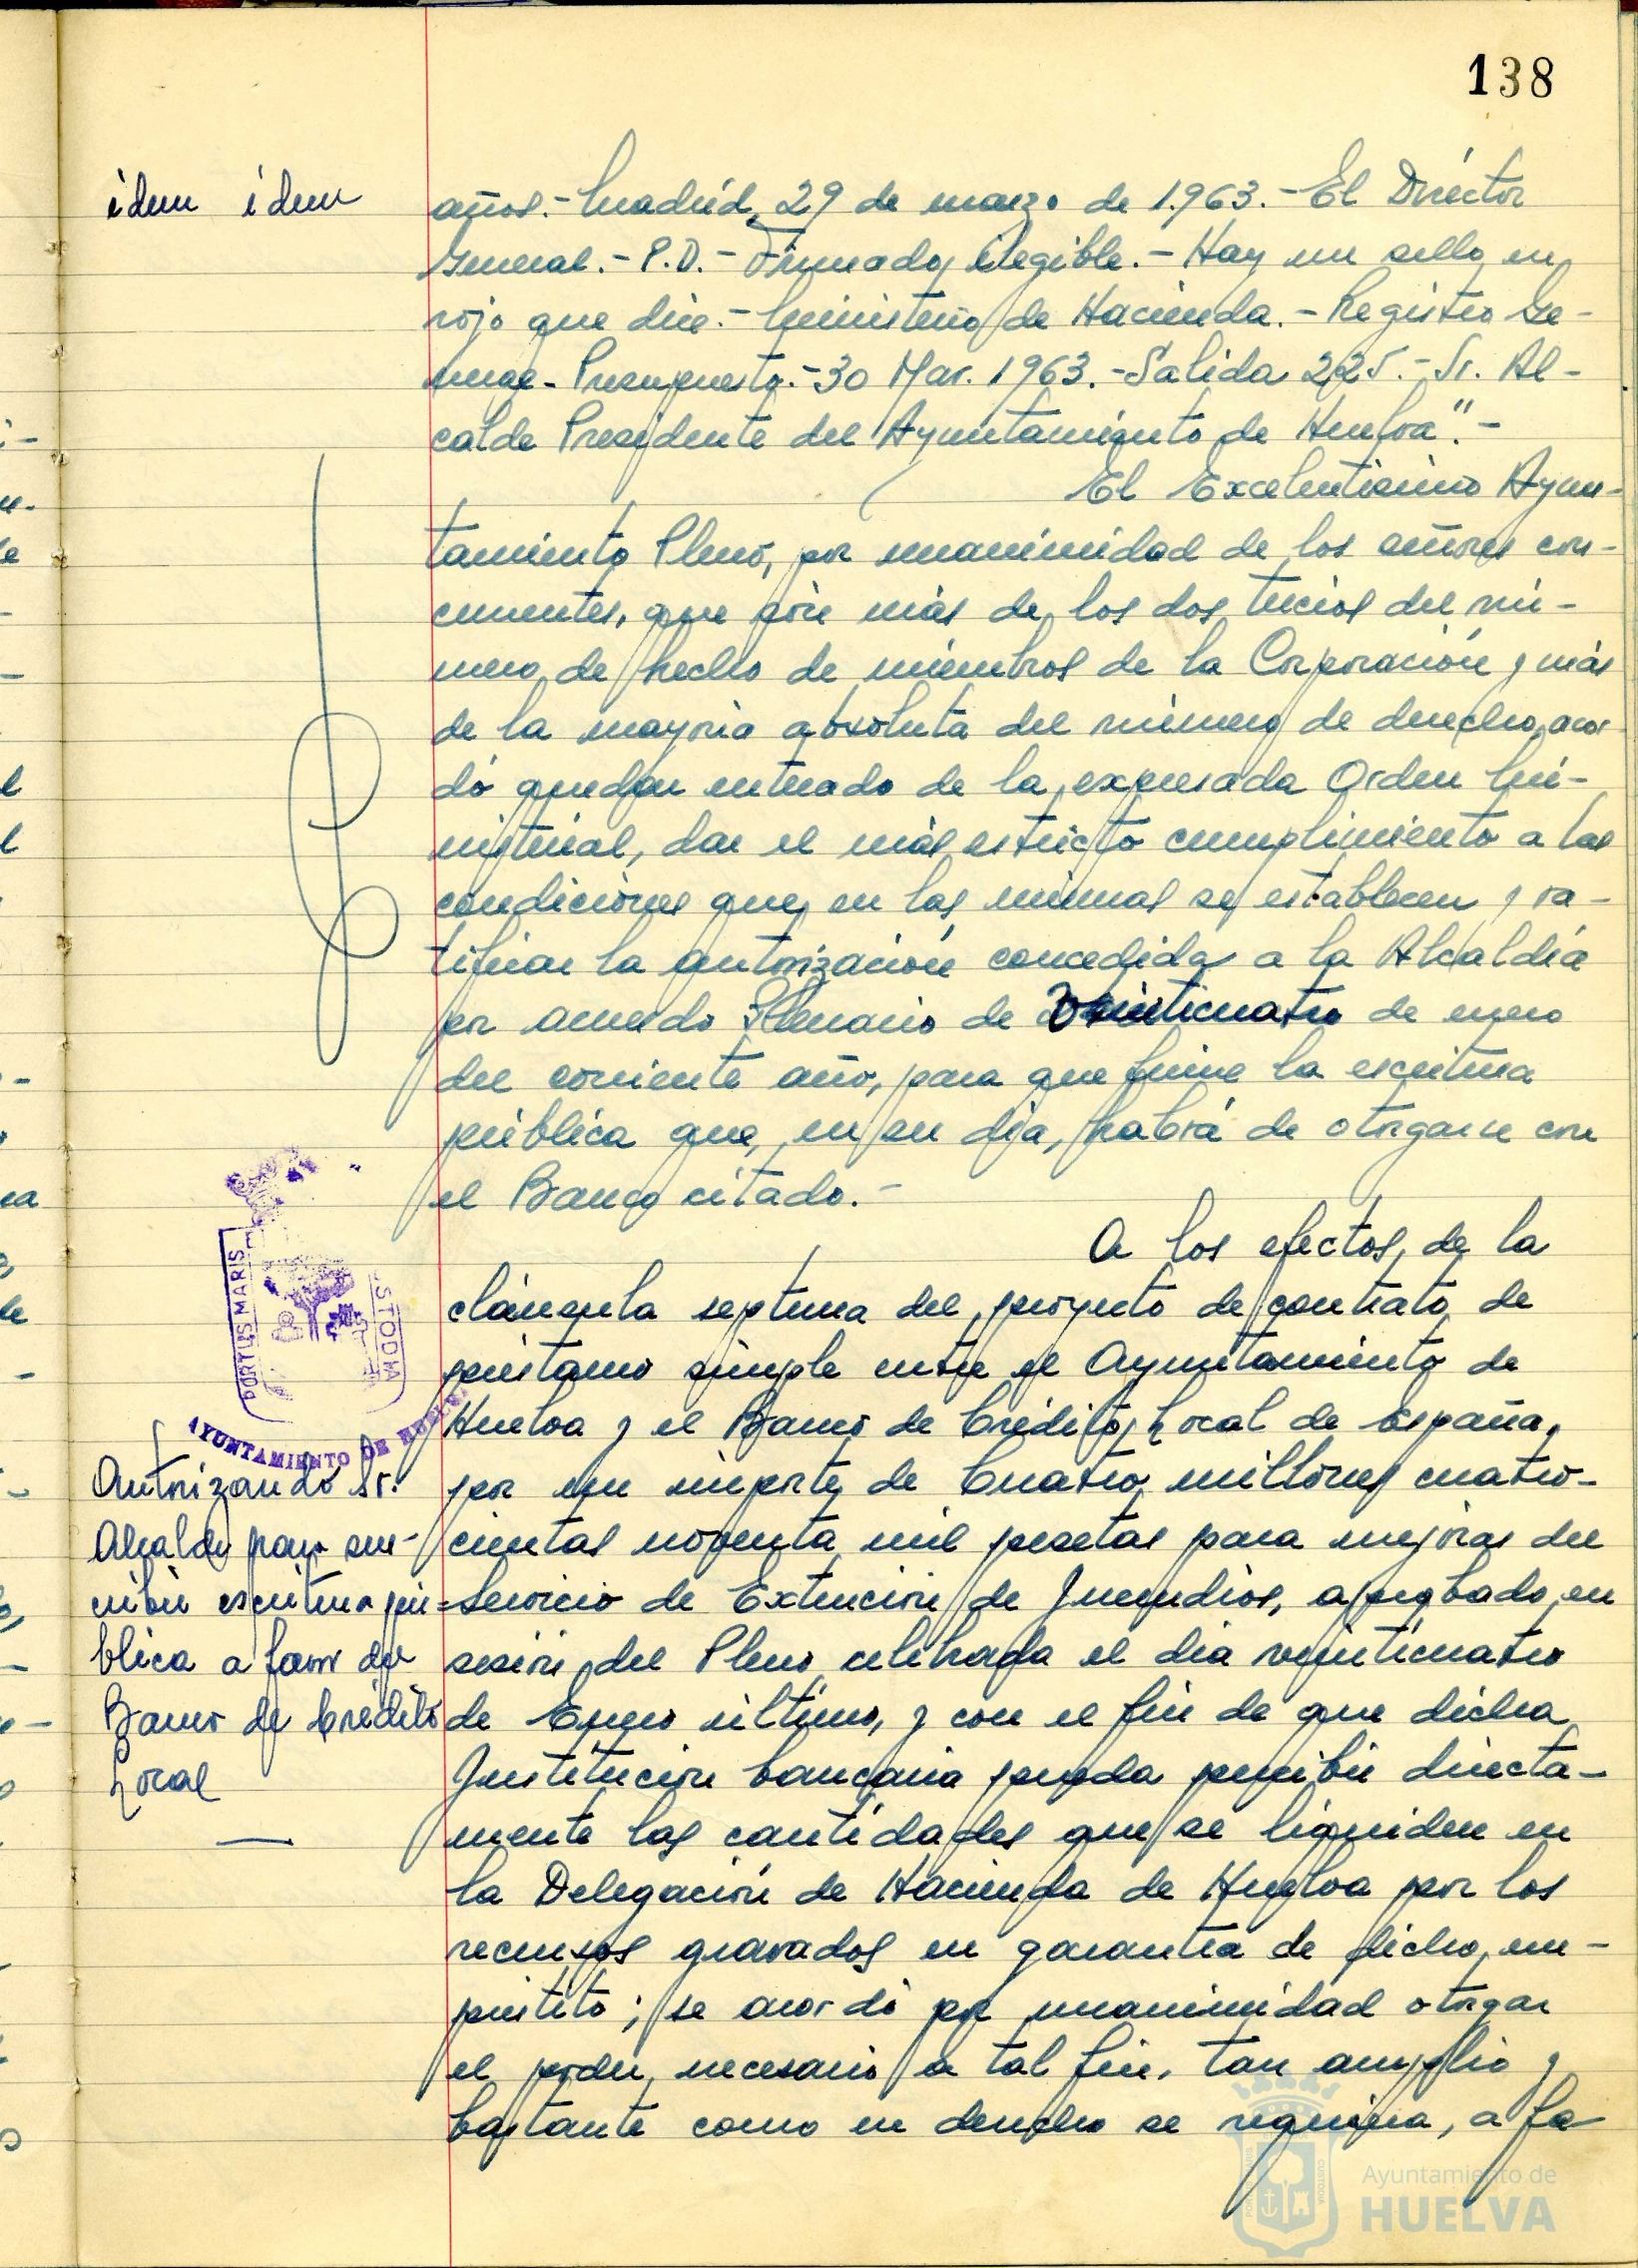 138
idem idem
años.- Madrid, 29 de marzo de 1.963.- El Director
General.- P.D.- Firmado, ilegible.- Hay un sello en
rojo que dice.- Ministerio de Hacienda.- Registro Ge-
Presupuesto.- 30 Mar. 1963.- Salida 225.- Sr. Al-
calde Presidente del Ayuntamiento de Huelva".-
El Excelentísimo Ayun-
tamiento Pleno, por unanimidad de los señores con-
currentes, que son más de los dos tercios del nú-
mero de hecho de miembros de la Corporación y más
de la mayoria absoluta del número de derecho, acor
dó quedar enterado de la expresada Orden Mi-
nisterial, dar el más estricto cumplimiento a las
condiciones que en las mismas se establecen y ra-
tificar la autorización concedida a la Alcaldía
por acuerdo Plenario de veinticuatro de enero
del corriente año, para que firme la escritura
pública que, en su dia, habrá de otorgarse con
el Banco citado.-
A los efectos de la
cláusula septima del proyecto de contrato de
préstamo simple entre el Ayuntamiento de
Huelva y el Banco de Crédito Local de España,
por un importe de Cuatro millones cuatro-
cientas noventa mil pesetas para mejoras del
Servicio de Extinción de Incendios, aprobado en
sesión del Pleno celebrada el día veinticuatro
de Enero último, y con el fin de que dicha
Institución bancaria pueda percibir directa-
mente las cantidades que se liquiden en
la Delegación de Hacienda de Huelva por los
recursos gravados en garantía de dicho em-
préstito; se acordó por unanimidad otorgar
el poder necesario a tal fin, tan amplio y
bastante como en derecho se requiera, a fa
PORTUS MARIS
STODIA
AYUNTAMIENTO DE HUELVA
Autorizando Sr.
Alcalde para sus-
cribir escritura pú-
blica a favor del
Banco de Crédito
Local
Ayuntamiento de
HUELVA